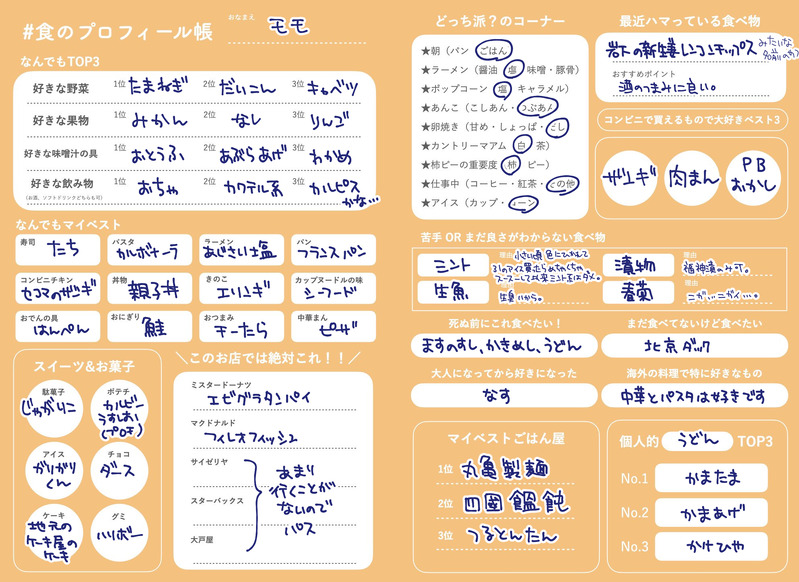 #食のプロフィール帳
おなまえ
モモ
なんでもTOP3
好きな野菜 1位 たまねぎ 2位 だいこん 3位 キャベツ
好きな果物 1位 みかん 2位 なし 3位 りんご
好きな味噌汁の具 1位 おとうふ 2位 あぶらあげ 3位 わかめ
好きな飲み物 1位 おちゃ 2位 カクテル系 3位 カルピス
(お酒、ソフトドリンクどちらも可)
かな…
なんでもマイベスト
寿司 たち
パスタ カルボナーラ
ラーメン あじさいは塩
パン フランスパン
コンビニチキン セコマのザンギ
丼物 親子丼
きのこ エリンギ
カップヌードルの味 シーフード
おでんの具 はんぺん
おにぎり 鮭
おつまみ チーたら
中華まん ピザ
スイーツ&お菓子
駄菓子 じゃがりこ
ポテチ カルビー
うすしお
アイス ガリガリ
くん
チョコ ダース
ケーキ 地元の
ケーキ屋の
ケーキ
グミ ハリボー
＼このお店では絶対これ！！／
ミスタードーナツ
エビグラタンパイ
マクドナルド
フィレオフィッシュ
サイゼリヤ
スターバックス
大戸屋
あまり
行くことが
ないので
パス
どっち派？のコーナー
★朝（パン ごはん
★ラーメン（醤油 塩 味噌・豚骨）
★ポップコーン 塩 キャラメル）
★あんこ（こしあん・つぶあん
★卵焼き（甘め・しょっぱ・だし
★カントリーマアム 白 茶）
★柿ピーの重要度 柿 ピー）
★仕事中（コーヒー・紅茶・その他
★アイス（カップ・コーン
最近ハマっている食べ物
岩下の新生姜レンコンチップス
みたいな
名前のやつ
おすすめポイント
酒のつまみに良い。
コンビニで買えるもので大好きベスト3
ザンギ
肉まん
PB
おかし
苦手 OR まだ良さがわからない食べ物
ミント
理由 小さい頃、色にひかれて
31のアイス買ったらめちゃくちゃ
スースーして以来ミント全般ダメ。
漬物
理由
福神漬のみ可。
生魚
理由
生臭いから。
春菊
理由
ニガい…ニガイ…。
死ぬ前にこれ食べたい！
ますのすし、かきめし、うどん
まだ食べてないけど食べたい
北京ダック
大人になってから好きになった
なす
海外の料理で特に好きなもの
中華とパスタは好きです
マイベストごはん屋
1位 丸亀製麺
2位 四國饂飩
3位 つるとんたん
個人的 うどん TOP3
No.1 かまたま
No.2 かまあげ
No.3 かけひや